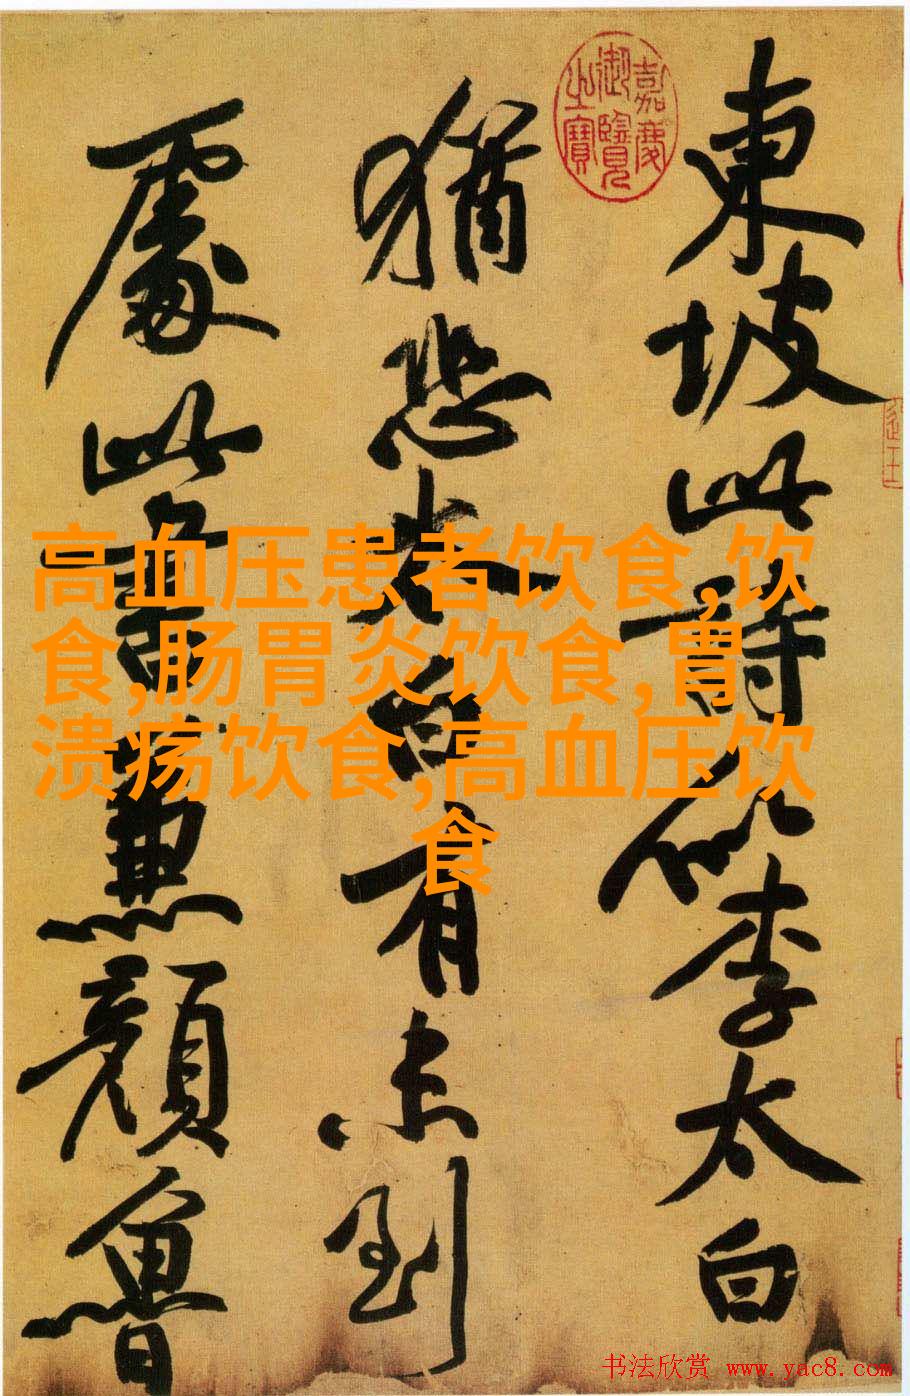 東坡此詩似李太白
猶恐太白有未到
處此書兼顏魯
嘉慶
御覽
之寶
高血压患者饮食,饮
食,肠胃炎饮食,胃
溃疡饮食,高血压饮
食
书法欣赏 www.yac8.com